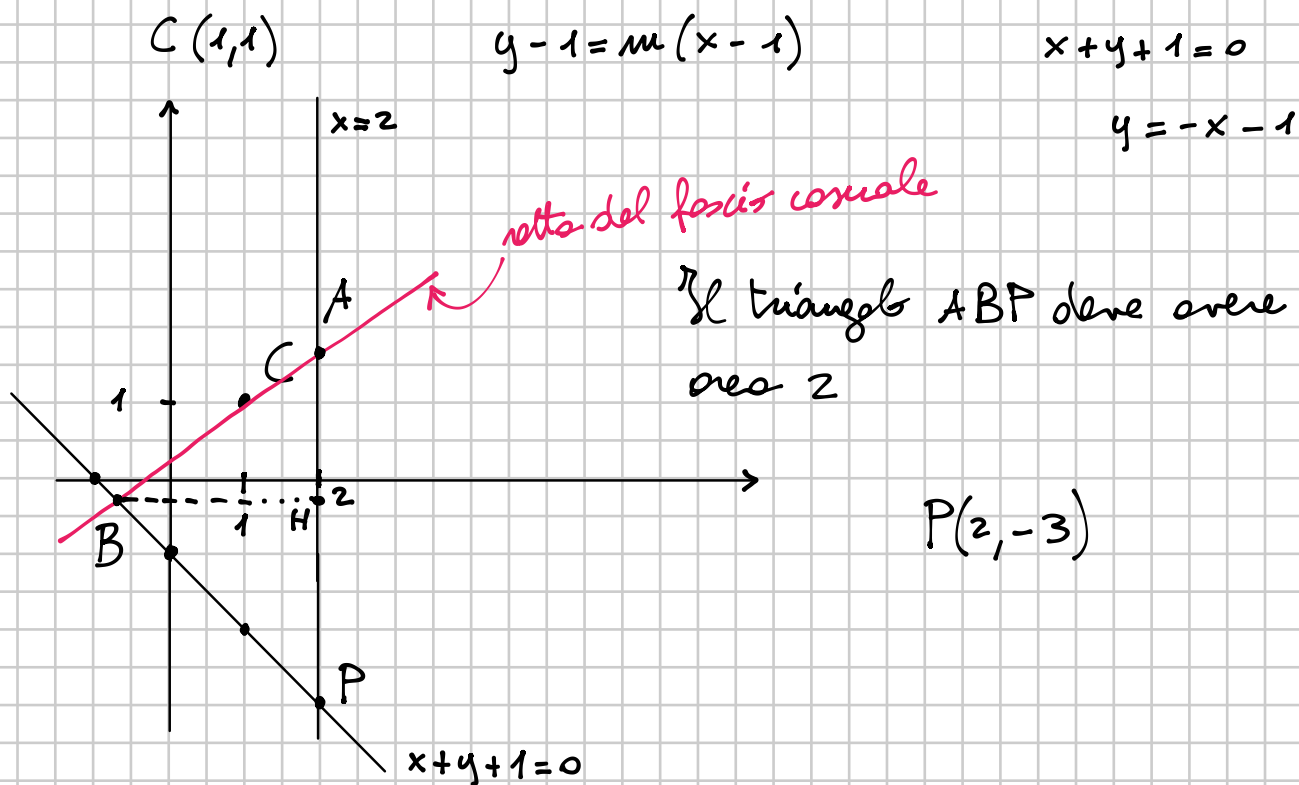 C (1,1)
y - 1 = m (x - 1)
x + y + 1 = 0
y = -x - 1
x = 2
retta del fascio casuale
A
Il triangolo ABP deve avere
area 2
C
1
2
1
H
B
P(2, -3)
P
x + y + 1 = 0